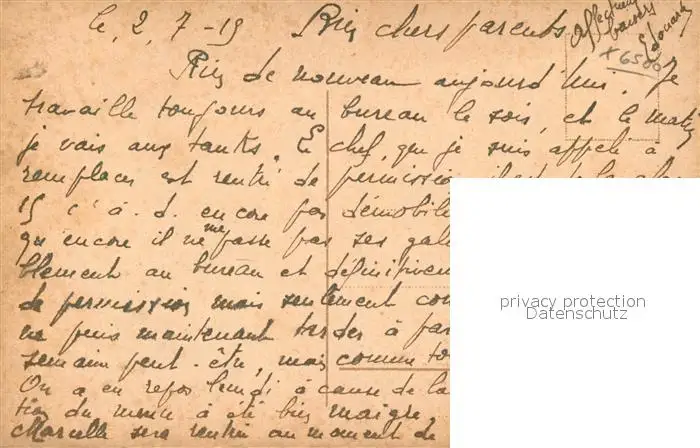 le, 2, 7-19 Bien chers parents
Affectueux
baisers
Edouard
x 6500
Rien de nouveau aujourd'hui. Je
travaille toujours au bureau le soir, et le matin
je vais aux tanks. Le chef, que je suis appelé à
remplacer est rentré de permission, il est de la classe
19 c'à.d. encore pas démobilis
qu'encore il ne me passe pas ses gal
blement au bureau et définitivem
de permission mais seulement com
ne puis maintenant tarder à par
semaine peut-être, mais comme to
On a eu repos lundi à cause de la
tion du menu à été bien maigre,
Marcelle sera rentrée au moment de
privacy protection
Datenschutz